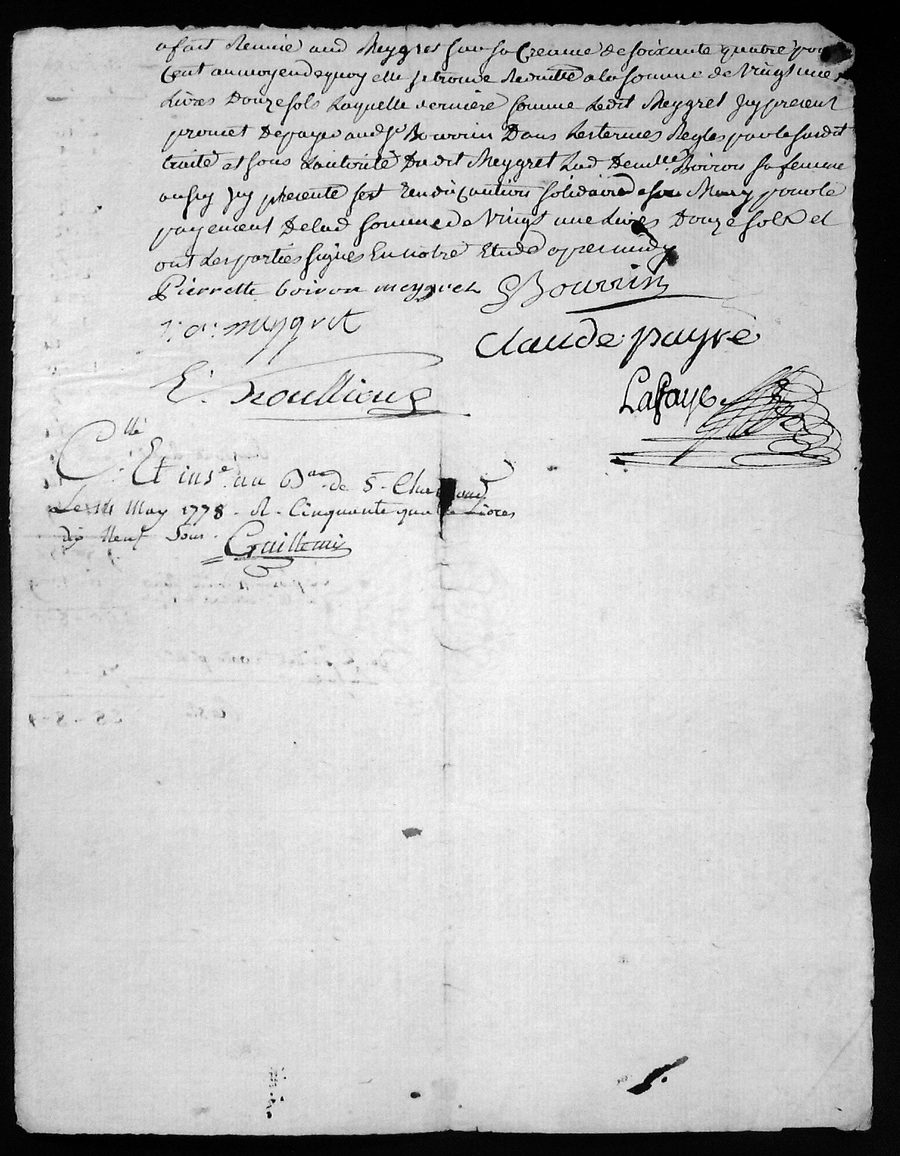 a fait Remise aud Meygret sur sa Creance de soixante quatre pour
Cent aumoyen dequoy elle setrouve Reduitte a la somme de Vingt une
Livres Douze sols Laquelle derniere somme Ledit Meygret Jcy present
promet De payer aud Sr Bourrin Dans Lestermes Regles par le susdit
traité et sous Lautorité Dudit Meygret Lad Demlle Boiron sa femme
aussy Jcy presente sest rendüe Caution solidaire de son Mary pour le
payement Delad somme de Vingt une Livres Douze sols et
ont Les parties signés En notre Etude apres midy
Pierrette boiron meygret GBourrin
meygret
Claude payre
E. Roullieng
Lafaye
Cllé Et insé. au Bau de St. Chamond
Le 14 May 1778 - R - Cinquante quatre Livres
dix Neuf Sous. Guillemin